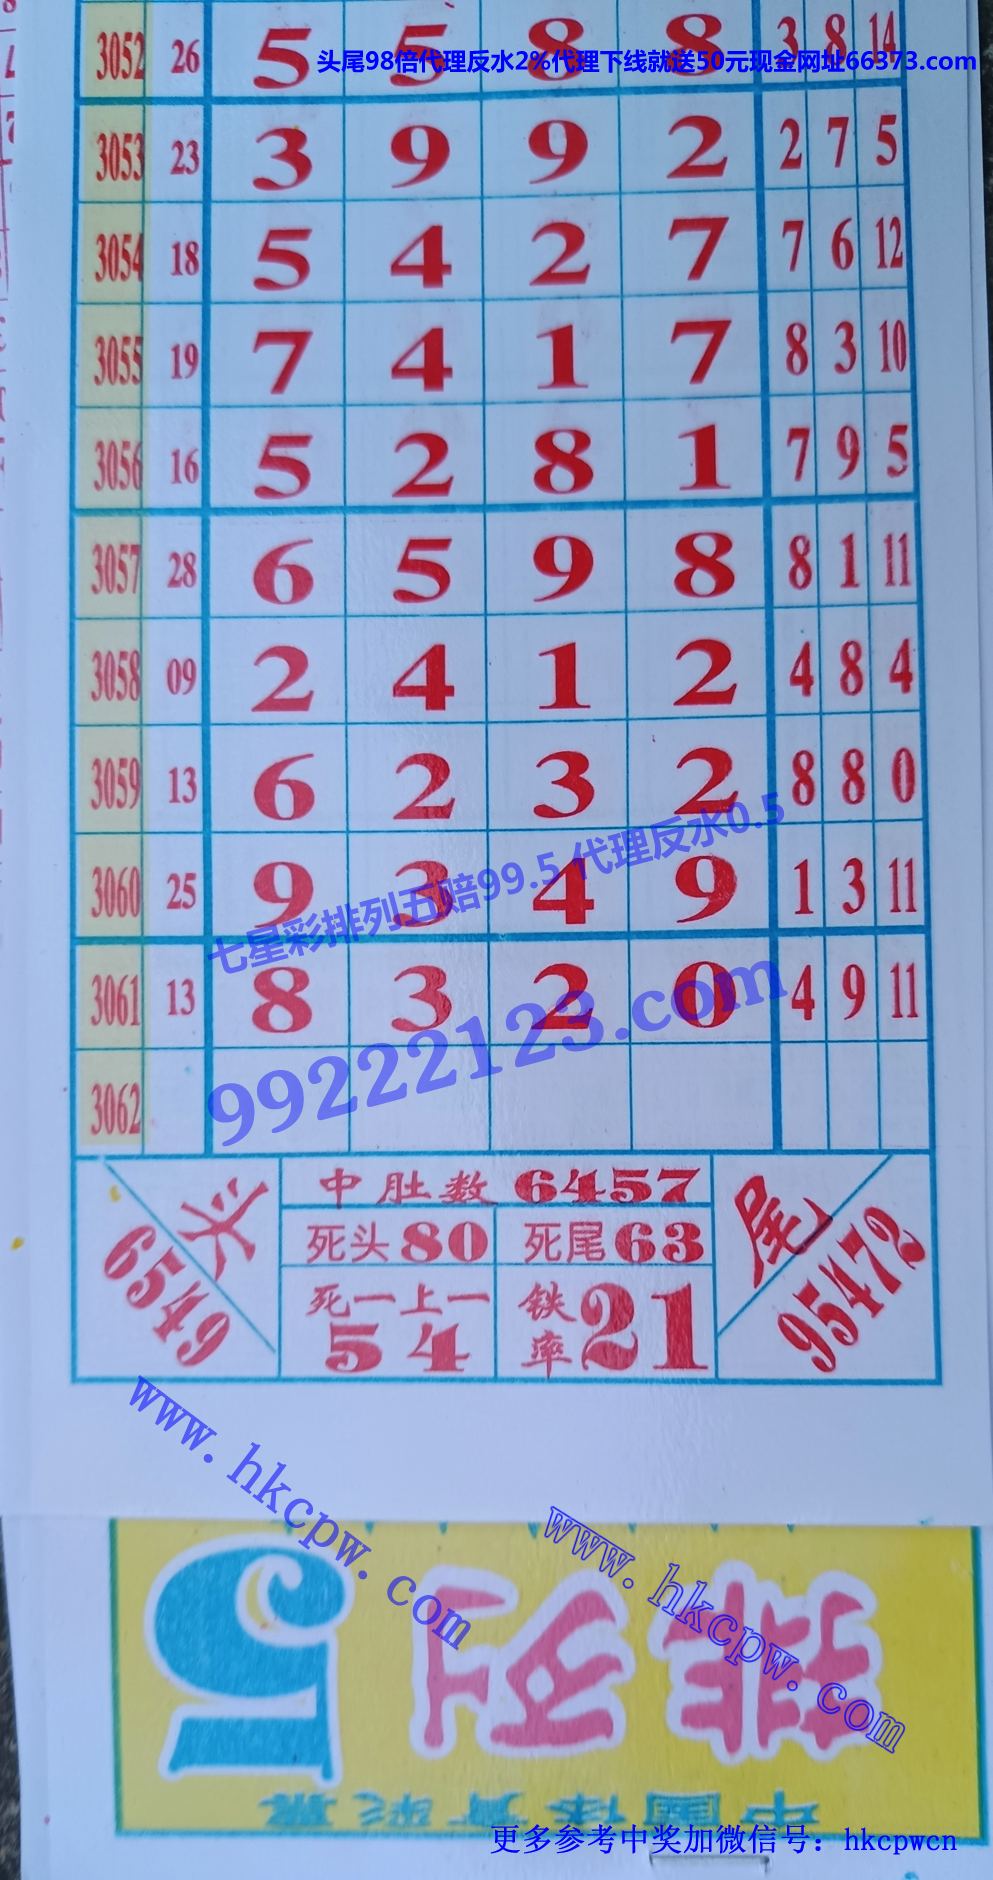 3052 26 5 5 8 8 3 8 14
头尾98倍代理反水2%代理下线就送50元现金网址66373.com
3053 23 3 9 9 2 2 7 5
3054 18 5 4 2 7 7 6 12
3055 19 7 4 1 7 8 3 10
3056 16 5 2 8 1 7 9 5
3057 28 6 5 9 8 8 1 11
3058 09 2 4 1 2 4 8 4
3059 13 6 2 3 2 8 8 0
七星彩排列五赔99.5 代理反水0.5
3060 25 9 3 4 9 1 3 11
3061 13 8 3 2 0 4 9 11
99222123.com
3062
头 6549
中肚数 6457
死头80 死尾63
死一上一 54
铁率21
尾 95472
www.hkcpw.com
www.hkcpw.com
排列5
中国体育彩票
更多参考中奖加微信号：hkcpwcn